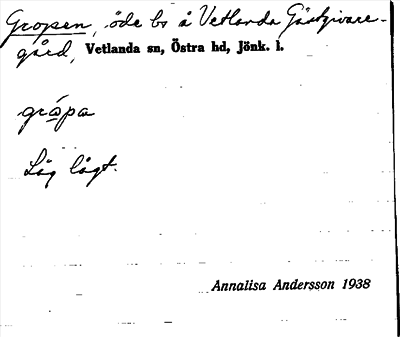 Gropen, öde bs å Vetlanda Gästgivare-
gård, Vetlanda sn, Östra hd, Jönk. l.
gråpa
Låg lågt.
Annalisa Andersson 1938